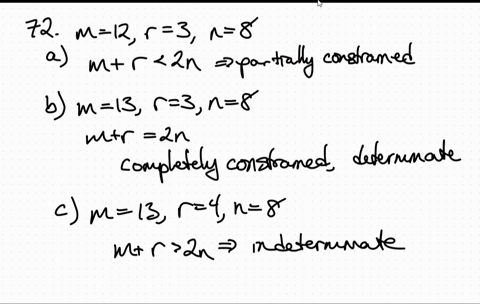 72. m=12, r=3, n=8
a) m+r<2n ⇒ partially constrained
b) m=13, r=3, n=8
m+r=2n
completely constrained, determinate
c) m=13, r=4, n=8
m+r>2n ⇒ indeterminate